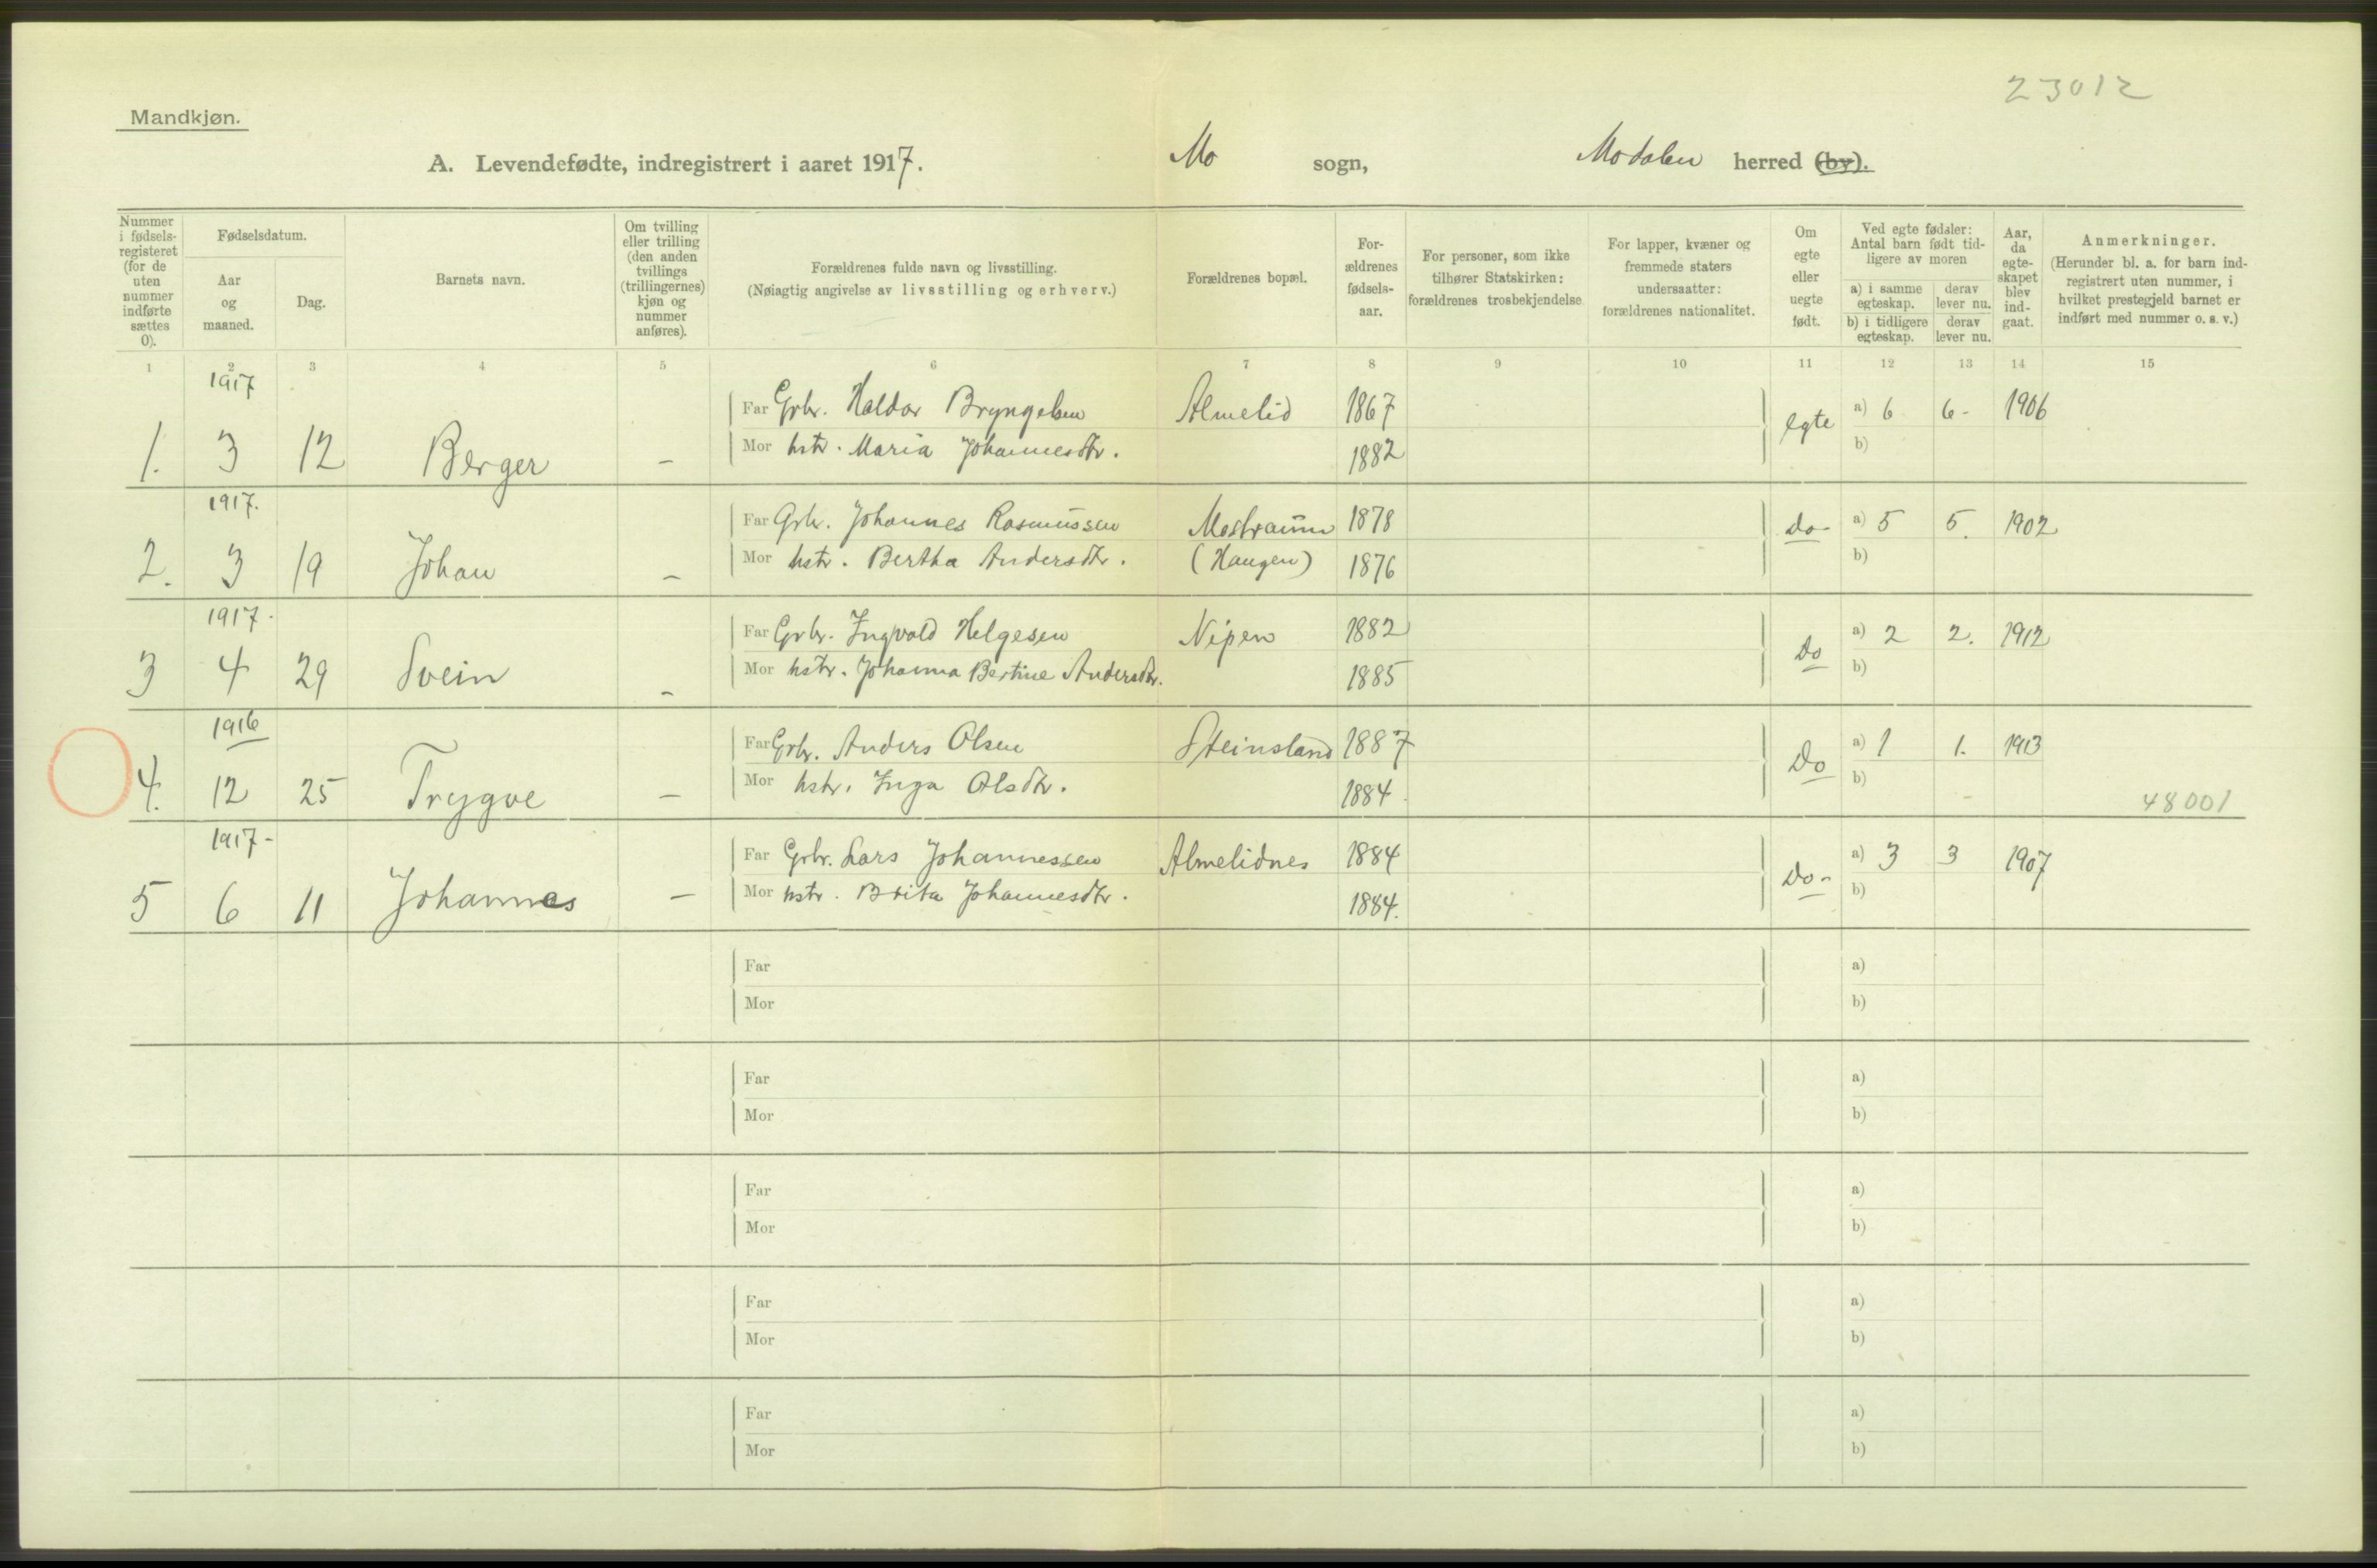 23012
Mandkjøn.
A. Levendefødte, indregistrert i aaret 1917. Mo sogn, Modalen herred (by).
Nummer i fødsels-registeret (for de uten nummer indførte sættes 0).
Fødselsdatum.
Aar og maaned.
Dag.
Barnets navn.
Om tvilling eller trilling (den anden tvillings (trillingernes) kjøn og nummer anføres).
Forældrenes fulde navn og livsstilling.
(Nøiagtig angivelse av livsstilling og erhverv.)
Forældrenes bopæl.
For-ældrenes fødsels-aar.
For personer, som ikke tilhører Statskirken: forældrenes trosbekjendelse.
For lapper, kvæner og fremmede staters undersaatter: forældrenes nationalitet.
Om egte eller uegte født.
Ved egte fødsler: Antal barn født tid-ligere av moren
a) i samme egteskap.
derav lever nu.
b) i tidligere egteskap.
derav lever nu.
Aar, da egte-skapet blev ind-gaat.
Anmerkninger.
(Herunder bl. a. for barn ind-registrert uten nummer, i hvilket prestegjeld barnet er indført med nummer o. s. v.)
1 2 3 4 5 6 7 8 9 10 11 12 13 14 15
1917
Far Gbr. Haldor Bryngelsen Almelid 1867 egte a) 6 6- 1906
1. 3 12 Berger – Mor hstr. Maria Johannesdtr. 1882 b)
1917.
Far Gbr. Johannes Rasmussen Mostraum 1878 do- a) 5 5. 1902
2. 3 19 Johan – Mor hstr. Bertha Andersdtr. (Haugen) 1876 b)
1917-
Far Gbr. Ingvald Helgesen Nipen 1882 Do a) 2 2. 1912
3 4 29 Svein – Mor hstr. Johanna Bertine Andersdtr. 1885 b)
1916
Far Gbr. Anders Olsen Steinsland 1887 Do a) 1 1. 1913
4. 12 25 Trygve – Mor hstr. Inga Olsdtr. 1884 b) 48001
1917-
Far Gbr. Lars Johannessen Almelidnes 1884 Do- a) 3 3 1907
5 6 11 Johannes – Mor hstr. Brita Johannesdtr. 1884. b)
Far a)
Mor b)
Far a)
Mor b)
Far a)
Mor b)
Far a)
Mor b)
Far a)
Mor b)